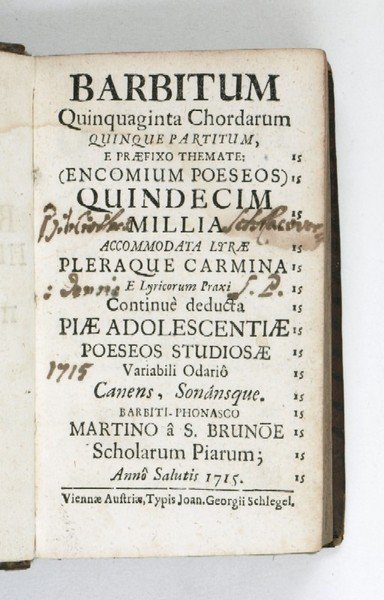 BARBITUM
Quinquaginta Chordarum
QUINQUE PARTITUM,
E PRÆFIXO THEMATE: 15
(ENCOMIUM POESEOS) 15
QUINDECIM 15
Bibliothecæ MILLIA 15
ACCOMMODATA LYRÆ 15
PLERAQUE CARMINA 15
E Lyricorum Praxi S. P. 15
Continuè deducta 15
PIÆ ADOLESCENTIÆ 15
POESEOS STUDIOSÆ 15
1715 Variabili Odariô 15
Canens, Sonánsque. 15
BARBITI-PHONASCO 15
MARTINO â S. BRUNŌE 15
Scholarum Piarum; 15
Annô Salutis 1715. 15
Viennæ Austriæ, Typis Joan. Georgii Schlegel.